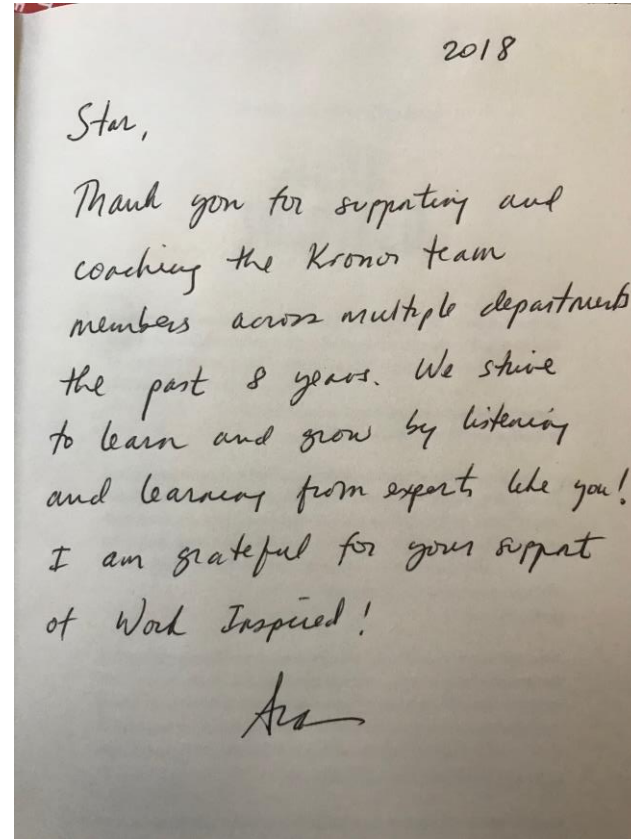 2018
Star,
Thank you for supporting and
coaching the Kronos team
members across multiple departments
the past 8 years. We strive
to learn and grow by listening
and learning from experts like you!
I am grateful for your support
of Work Inspired!
Aron